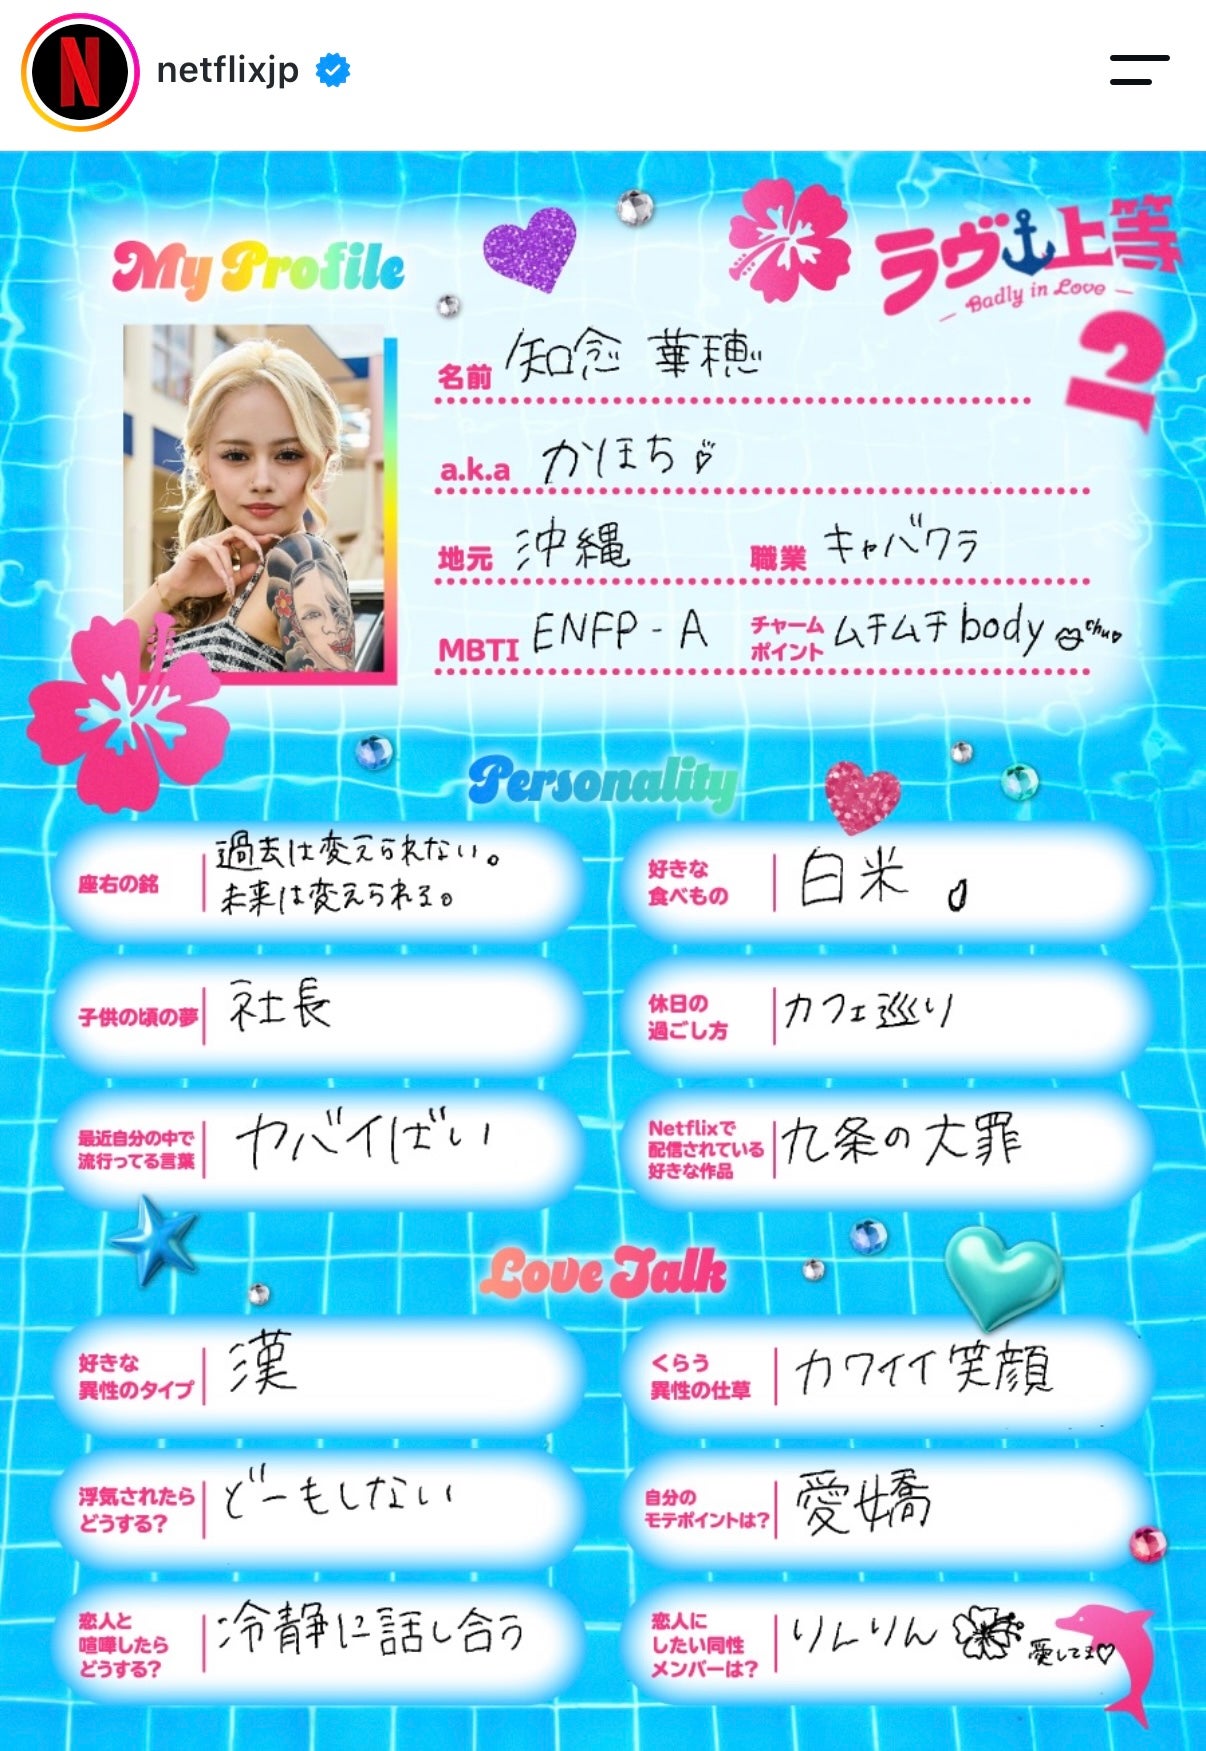 netflixjp
My Profile
ラヴ上等
Badly in Love
2
名前 知念 華穂
a.k.a かほち♡
地元 沖縄 職業 キャバワラ
MBTI ENFP-A チャームポイント ムチムチbody chu♡
Personality
座右の銘
過去は変えられない。
未来は変えられる。
好きな
食べもの
白米
子供の頃の夢 社長
休日の
過ごし方
カフェ巡り
最近自分の中で
流行ってる言葉
ヤバイばい
Netflixで
配信されている
好きな作品
九条の大罪
Love Talk
好きな
異性のタイプ
漢
くらう
異性の仕草
カワイイ笑顔
浮気されたら
どうする?
どーもしない
自分の
モテポイントは?
愛嬌
恋人と
喧嘩したら
どうする?
冷静に話し合う
恋人に
したい同性
メンバーは?
りんりん
愛してる♡